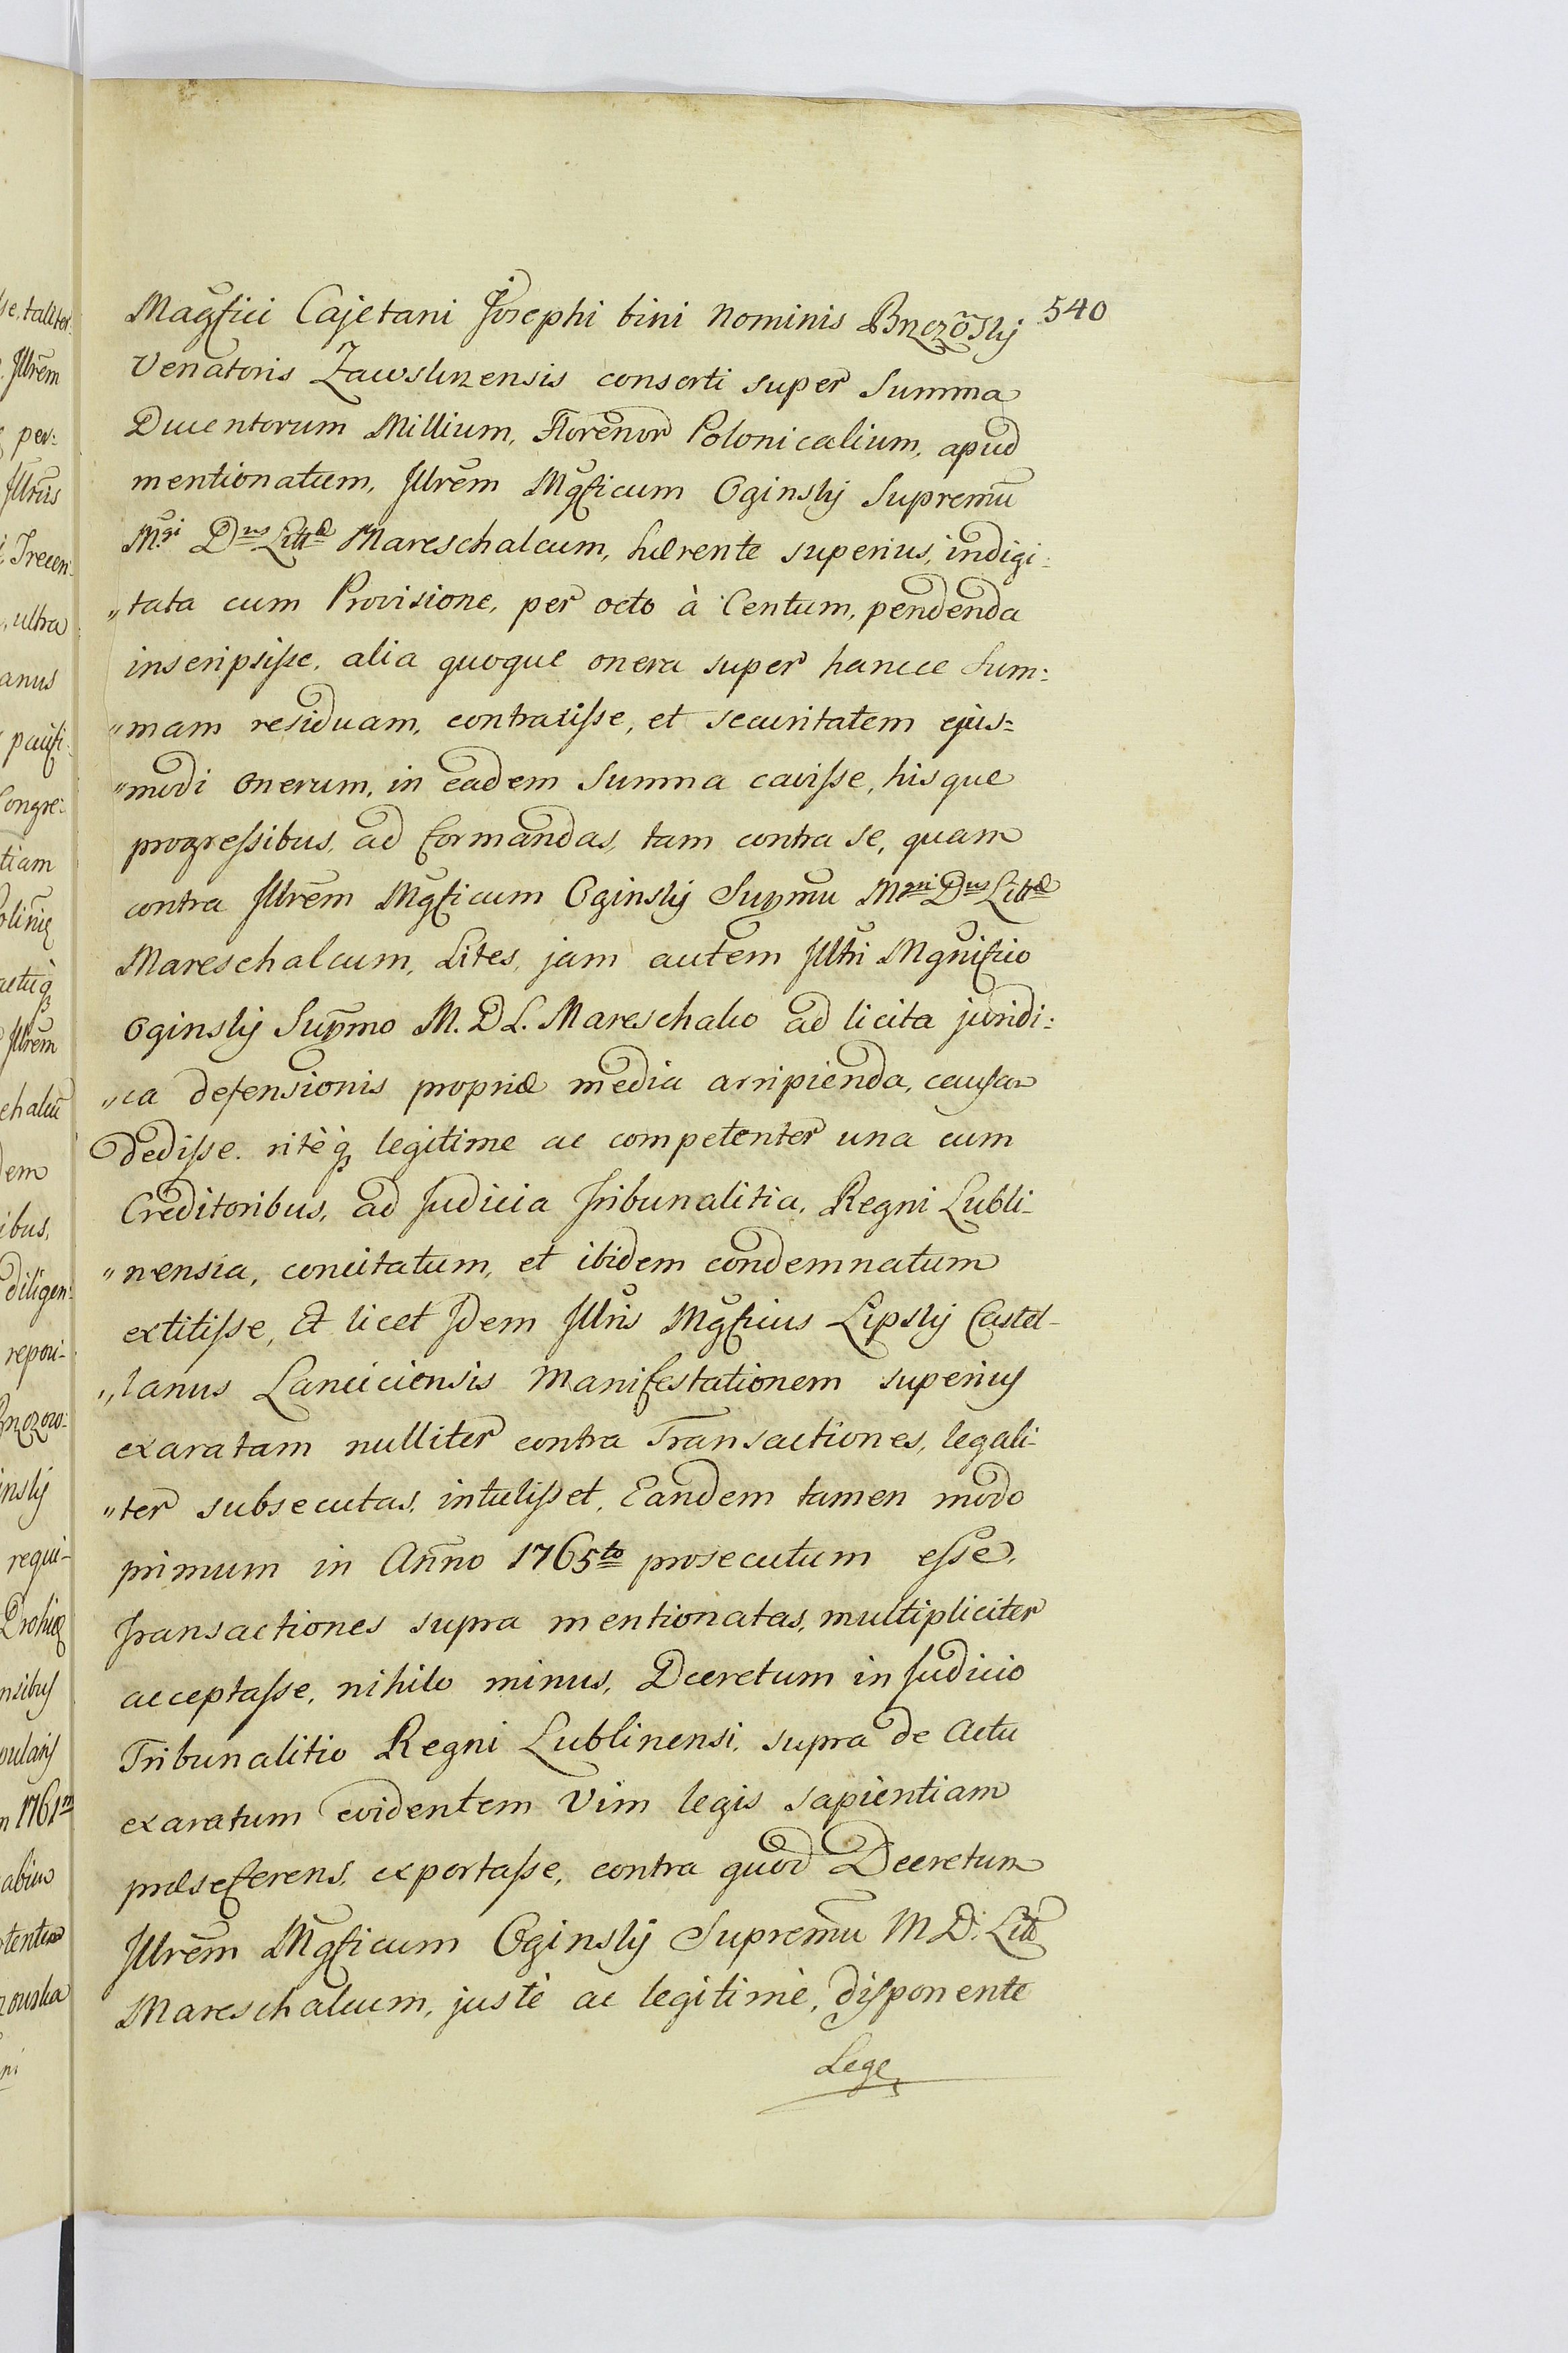 540
Magfici Cajetani Josephi bini Nominis Brzozōskij
Venatoris Zawskrzensis consorti super Summa
Ducentorum Millium, Florenor Polonicalium, apud
mentionatum, Illrēm Mgficum Oginskij Supremū
M.gi D.us Litt.æ Mareschalcum, hærente superius, indigi:
„tata cum Provisione, per octo à Centum, pendenda
inscripsisse, alia quoque onera super hancce Sum:
„mam residuam, contraxisse, et securitatem ejus=
„modi onerum, in eadem Summa cavisse, hisque
progressibus, ad formandas, tam contra se, quam
contra Illrēm Mgficum Oginskij Supmū M.gni D.us Litt.æ
Mareschalcum, Lites, jam autem Illri Mgnifico
Oginskij Supmo M. D L. Mareschalco ad licita juridi:
„ca defensionis propriæ media arripienda, causam
dedisse. ritèq legitime ac competenter una cum
Creditoribus, ad Judicia Tribunalitia, Regni Lubli-
„nensia, concitatum, et ibidem condemnatum
extitisse, Et licet Idem Illris Mgficus Lipskij Castel-
„lanus Lanciciensis Manifestationem superius
exaratam nulliter contra Transactiones, legali-
„ter subsecutas, intulisset, Eandem tamen modo
primum in Anno 1765to prosecutum esse,
Transactiones supra mentionatas, multipliciter
acceptasse, nihilo minus, Decretum in Judicio
Tribunalitio Regni Lublinensi, supra de Actu
exaratum evidentem Vim legis sapientiam
præseferens, exportasse, contra quod Decretum
Illrēm Mgficum Oginskij Supremū M D. Litt
Mareschalcum, justè ac legitimè, disponente
Lege